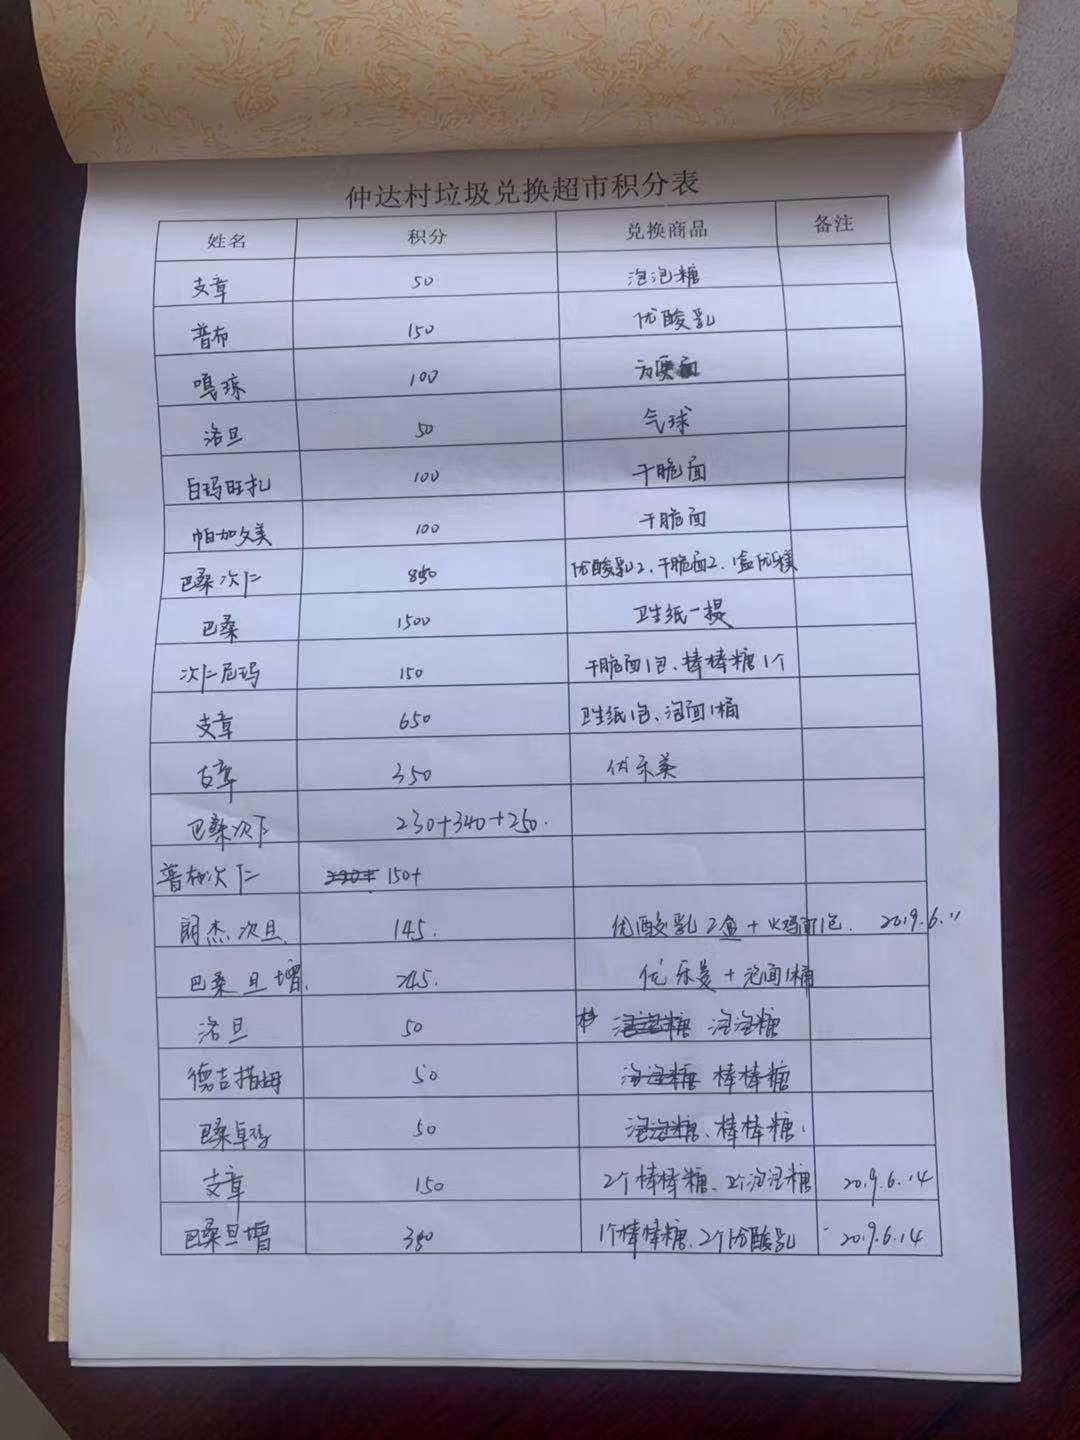 仲达村垃圾兑换超市积分表
姓名 积分 兑换商品 备注
支章 50 泡泡糖
普布 150 优酸乳
嘎琼 100 方便面
洛旦 50 气球
白玛旺扎 100 干脆面
帕加文美 100 干脆面
巴桑次仁 850 优酸乳2、干脆面2、1盒优乐美
巴桑 1500 卫生纸一提
次仁尼玛 150 干脆面1包、棒棒糖1个
支章 650 卫生纸1包、泡面1桶
支章 350 优乐美
巴桑次仁 230+340+250.
普布次仁 150+
朗杰次旦 145. 优酸乳2盒+火鸡面1包. 2019.6.11
巴桑旦增. 245. 优乐美+泡面1桶
洛旦 50 泡泡糖 泡泡糖
德吉措姆 50 泡泡糖 棒棒糖
巴桑卓玛 50 泡泡糖、棒棒糖.
支章 150 2个棒棒糖、2个泡泡糖 2019.6.14
巴桑旦增 380 1个棒棒糖、2个优酸乳 2019.6.14